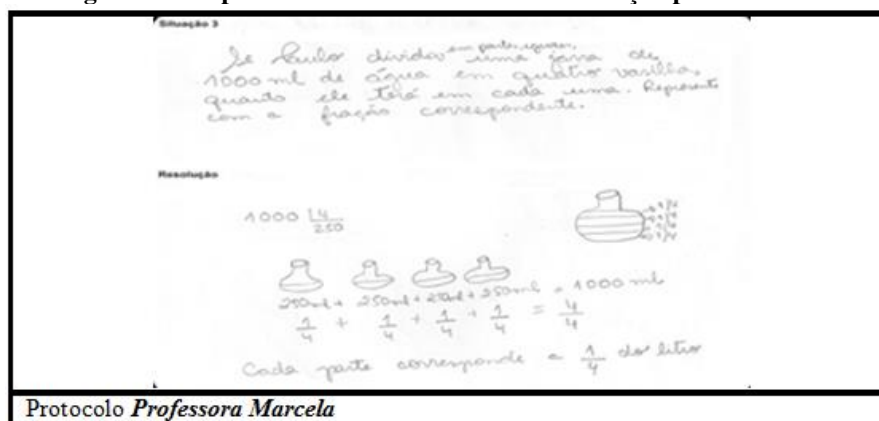 Situação 3
em partes iguais,
Se Paulo dividir uma jarra de
1000 ml de água em quatro vasilhas,
quanto ele terá em cada uma. Represente
com a fração correspondente.
Resolução
1000 4
250
250ml + 250ml + 250ml + 250ml = 1000 ml
1/4 + 1/4 + 1/4 + 1/4 = 4/4
Cada parte corresponde a 1/4 do litro
Protocolo Professora Marcela